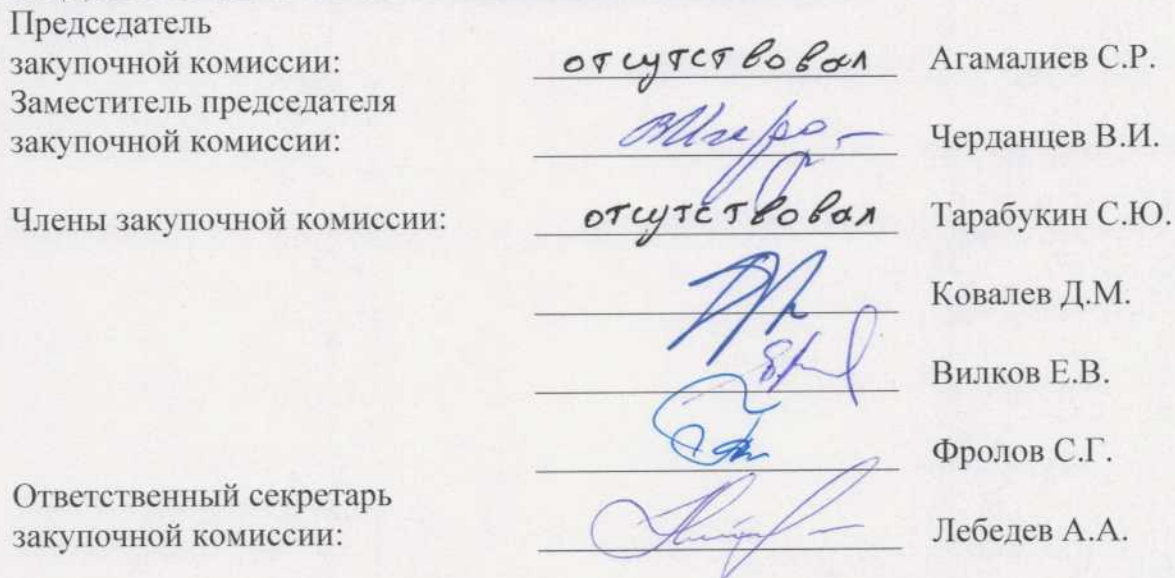 Председатель
закупочной комиссии: отсутствовал Агамалиев С.Р.
Заместитель председателя
закупочной комиссии: Черданцев В.И.
Члены закупочной комиссии: отсутствовал Тарабукин С.Ю.
Ковалев Д.М.
Вилков Е.В.
Фролов С.Г.
Ответственный секретарь
закупочной комиссии: Лебедев А.А.